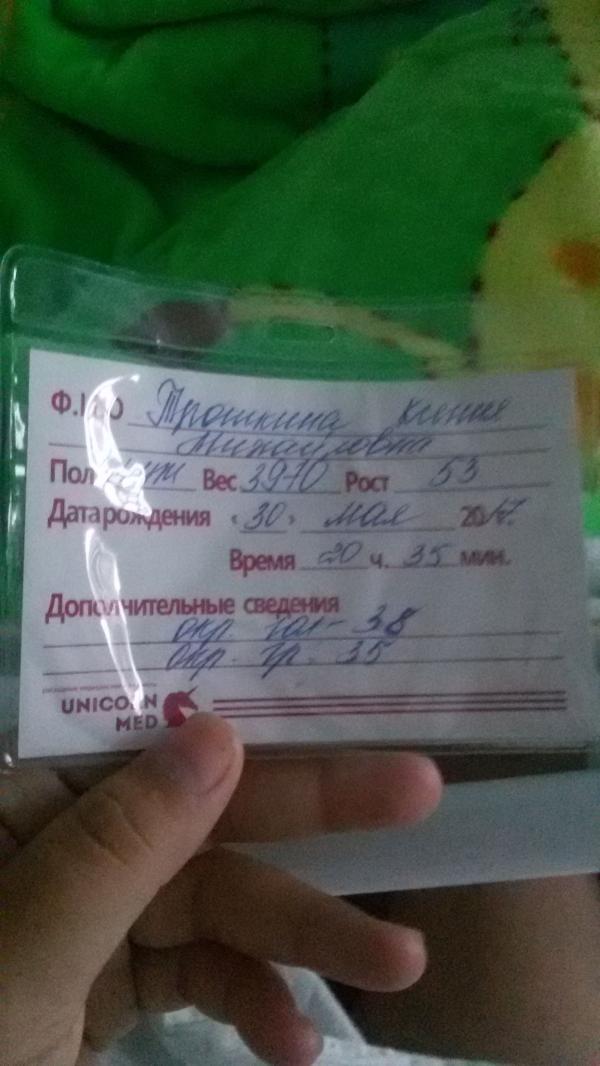 Ф.И.О Трошкина Ксения
Михайловна
Пол муж Вес 3970 Рост 53
Дата рождения «30» мая 2017.
Время 20 ч. 35 мин.
Дополнительные сведения
окр. гол - 38
окр. гр. 35
UNICORN
MED